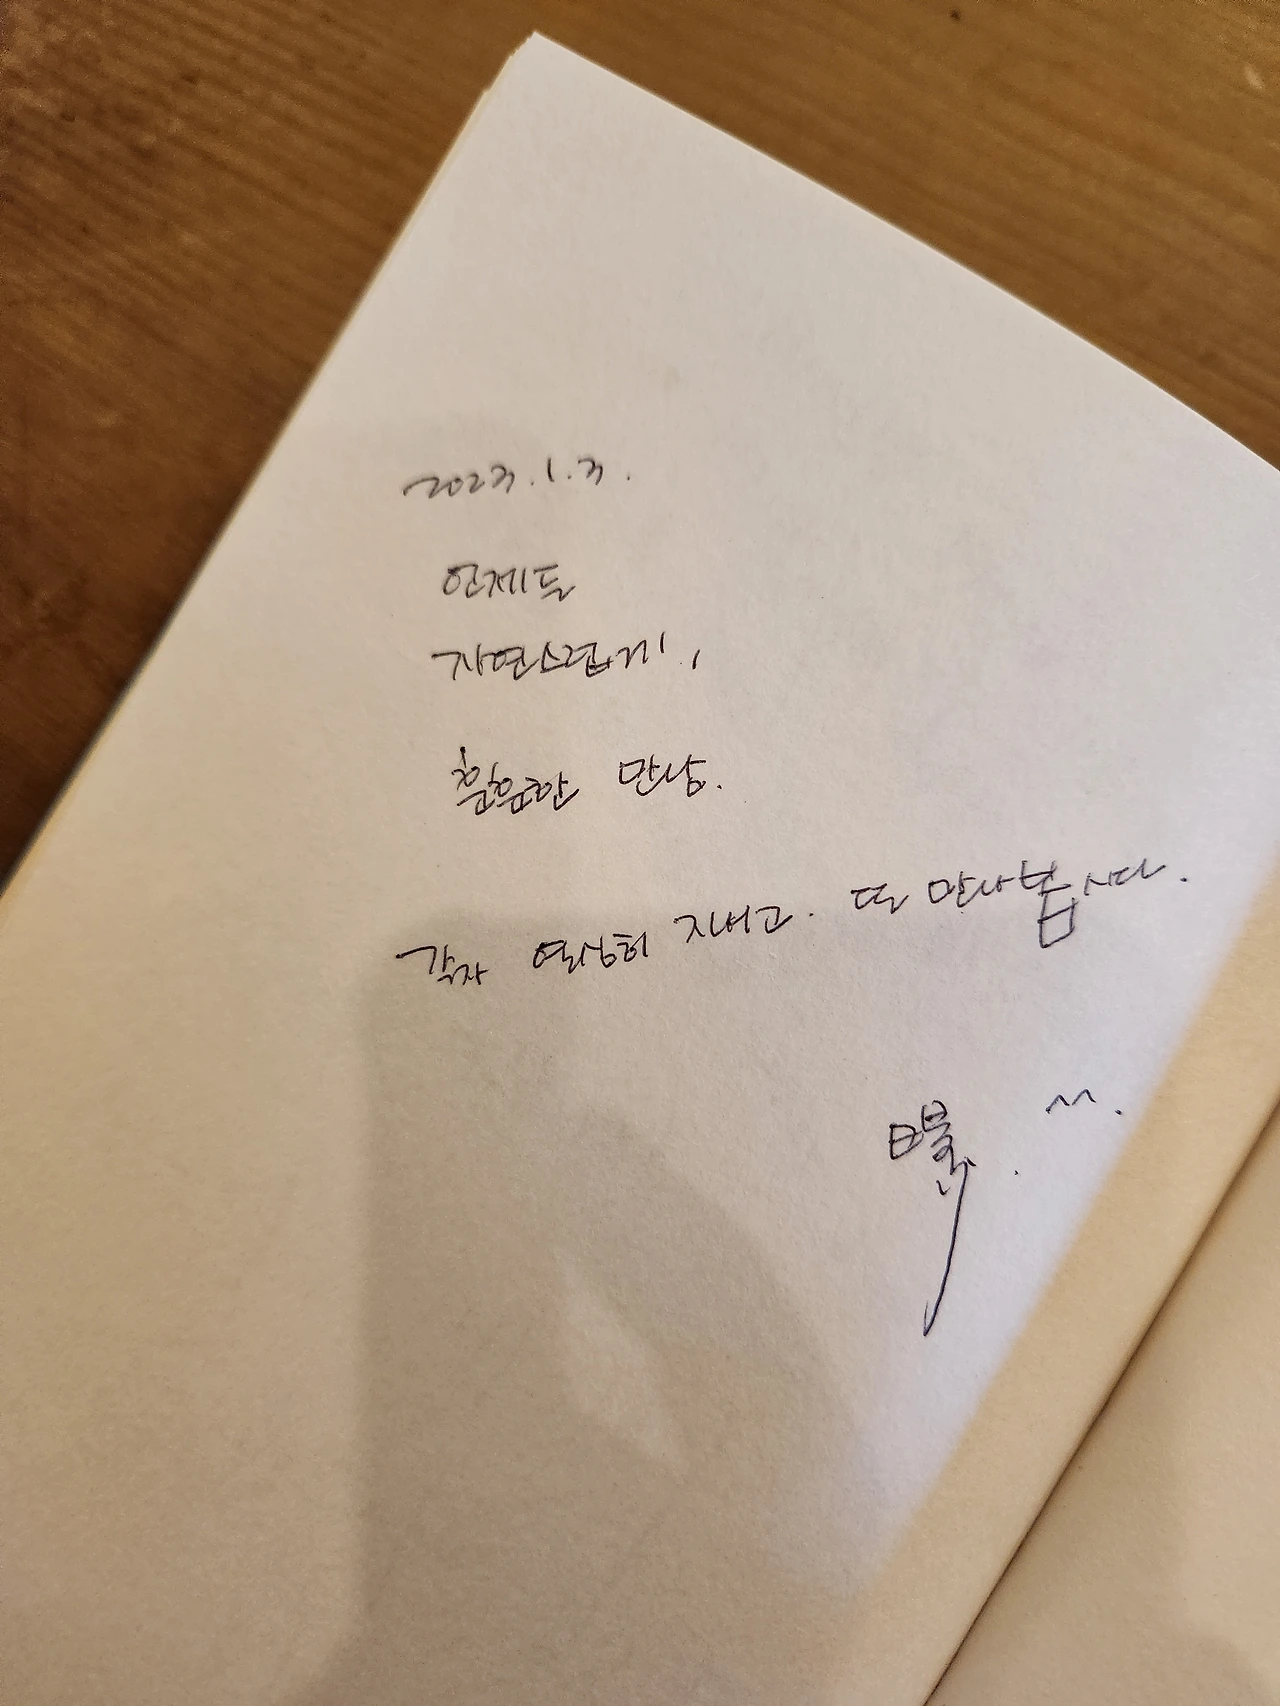 2023.1.3.
언제든
자연스럽게,
훈훈한 만남.
각자 열심히 지내고. 또 만나봅시다.
^^.